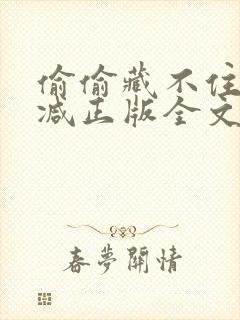 偷偷藏不住
减正版全文
春夢開情